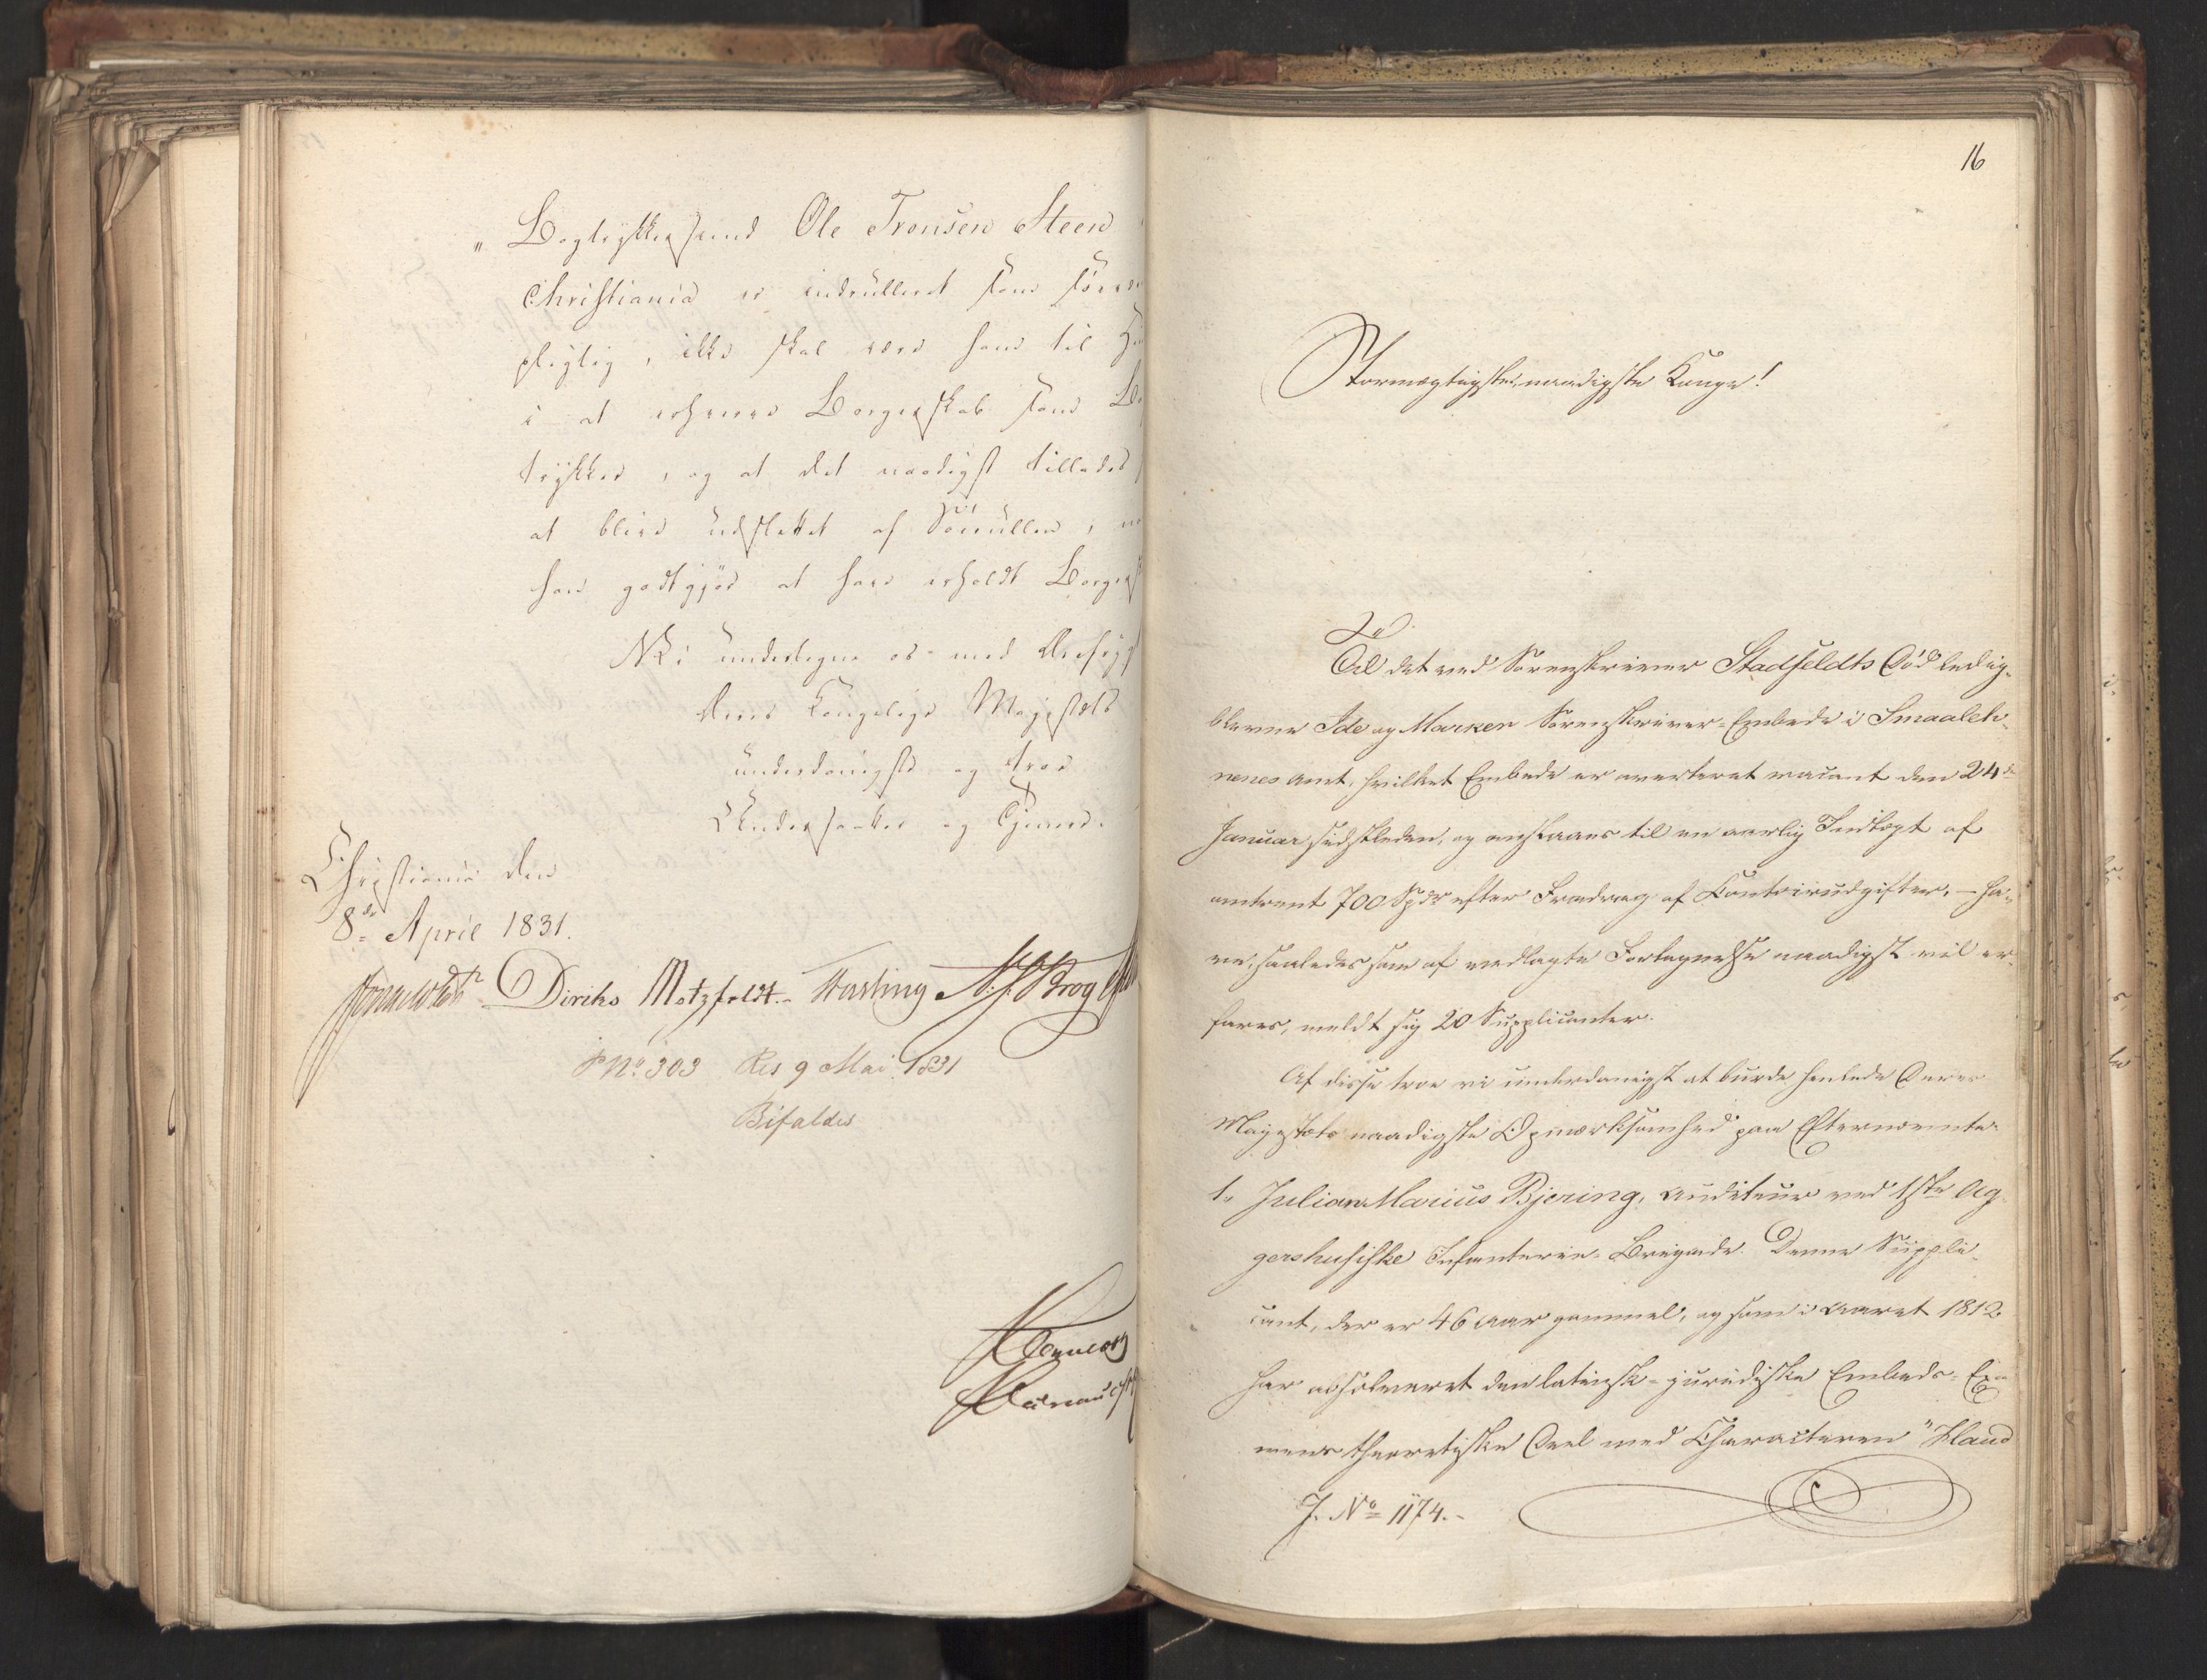 „ Bogtrykkersvend Ole Tronsen Steen
Christiania er indrulleret som
pligtig, ikke skal være ham til
i at erhverve Borgerskab som
trykker, og at det naadigst tillades
at blive udslettet af Sörullen,
han godtgjør at have erholdt
Vi undertegne os med
Deres Kongelige Majestæts
underdanigste og troe
Undersaatter og Tjenere.
Christiania den
8de April 1831.
Diriks Motzfeldt. N. J.
No. 303 Res 9 Mai 1831
Bifaldes
16
Stormægtigste, naadigste Konge!
Til det ved Sorenskriver Stadfeldts Død ledig-
blevne Ide og Marker Sorenskriver-Embede i Smaaleh-
nenes Amt, hvilket Embede er averteret vacant den 24de
Januar sidstleden, og anslaaes til en aarlig Indtægt af
omtrent 700 Spdr efter Fradrag af Contoirudgifter, – ha-
ve, saaledes som af vedlagte Fortegnelse naadigst vil er-
fares, meldt sig 20 Supplicanter.
Af disse troe vi underdanigst at burde henlede Deres
Majestæts naadigste Opmærksomhed paa Efternævnte:
1. Julian Marius Bjering, Auditeur ved 1ste Ag-
gershusiske Infanterie-Brigade. Denne Suppli-
cant, der er 46 Aar gammel, og som i Aaret 1812
har absolveret den latinsk-juridiske Embeds-Exa-
mens theoretiske Deel med Characteren "Haud
J. No 1174.-